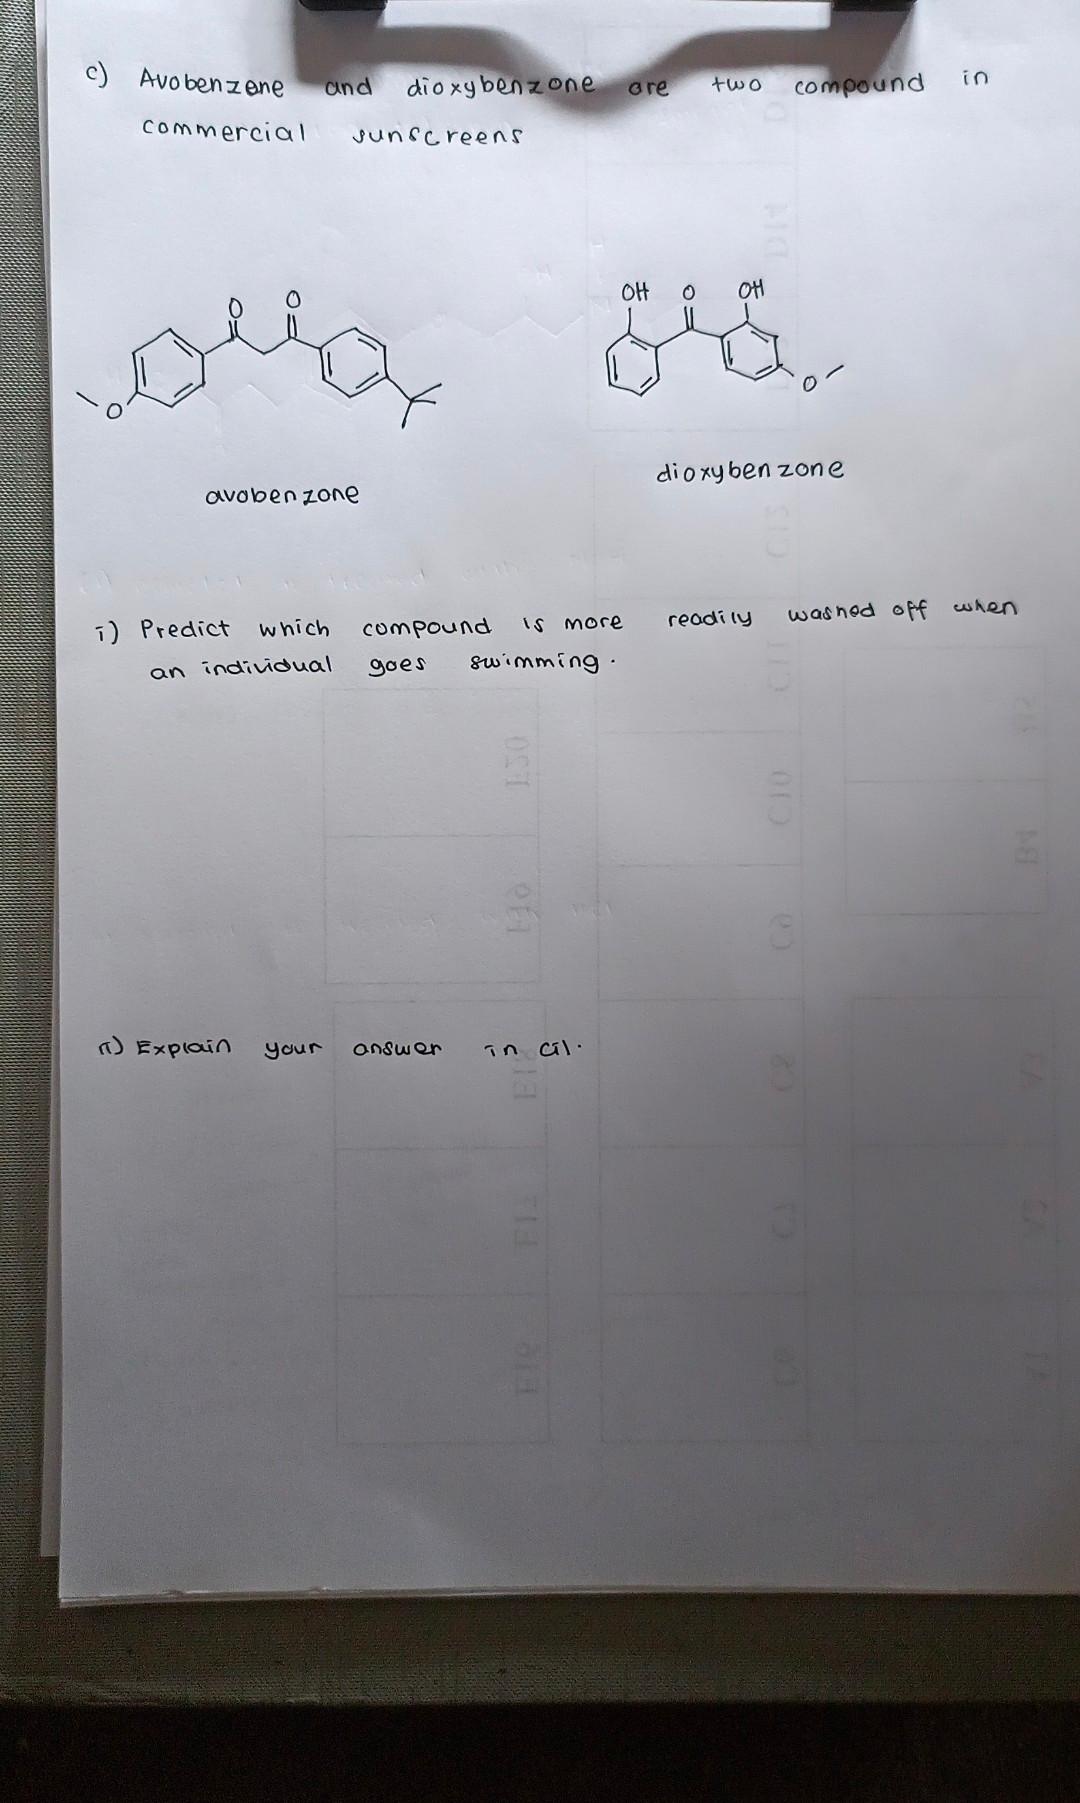 c) Avobenzene and dioxybenzone are two compound in
commercial sunscreens
O O
O
OH O OH
O
avobenzone
dioxybenzone
i) Predict which compound is more readily washed off when
an individual goes swimming.
ii) Explain your answer in c)i.